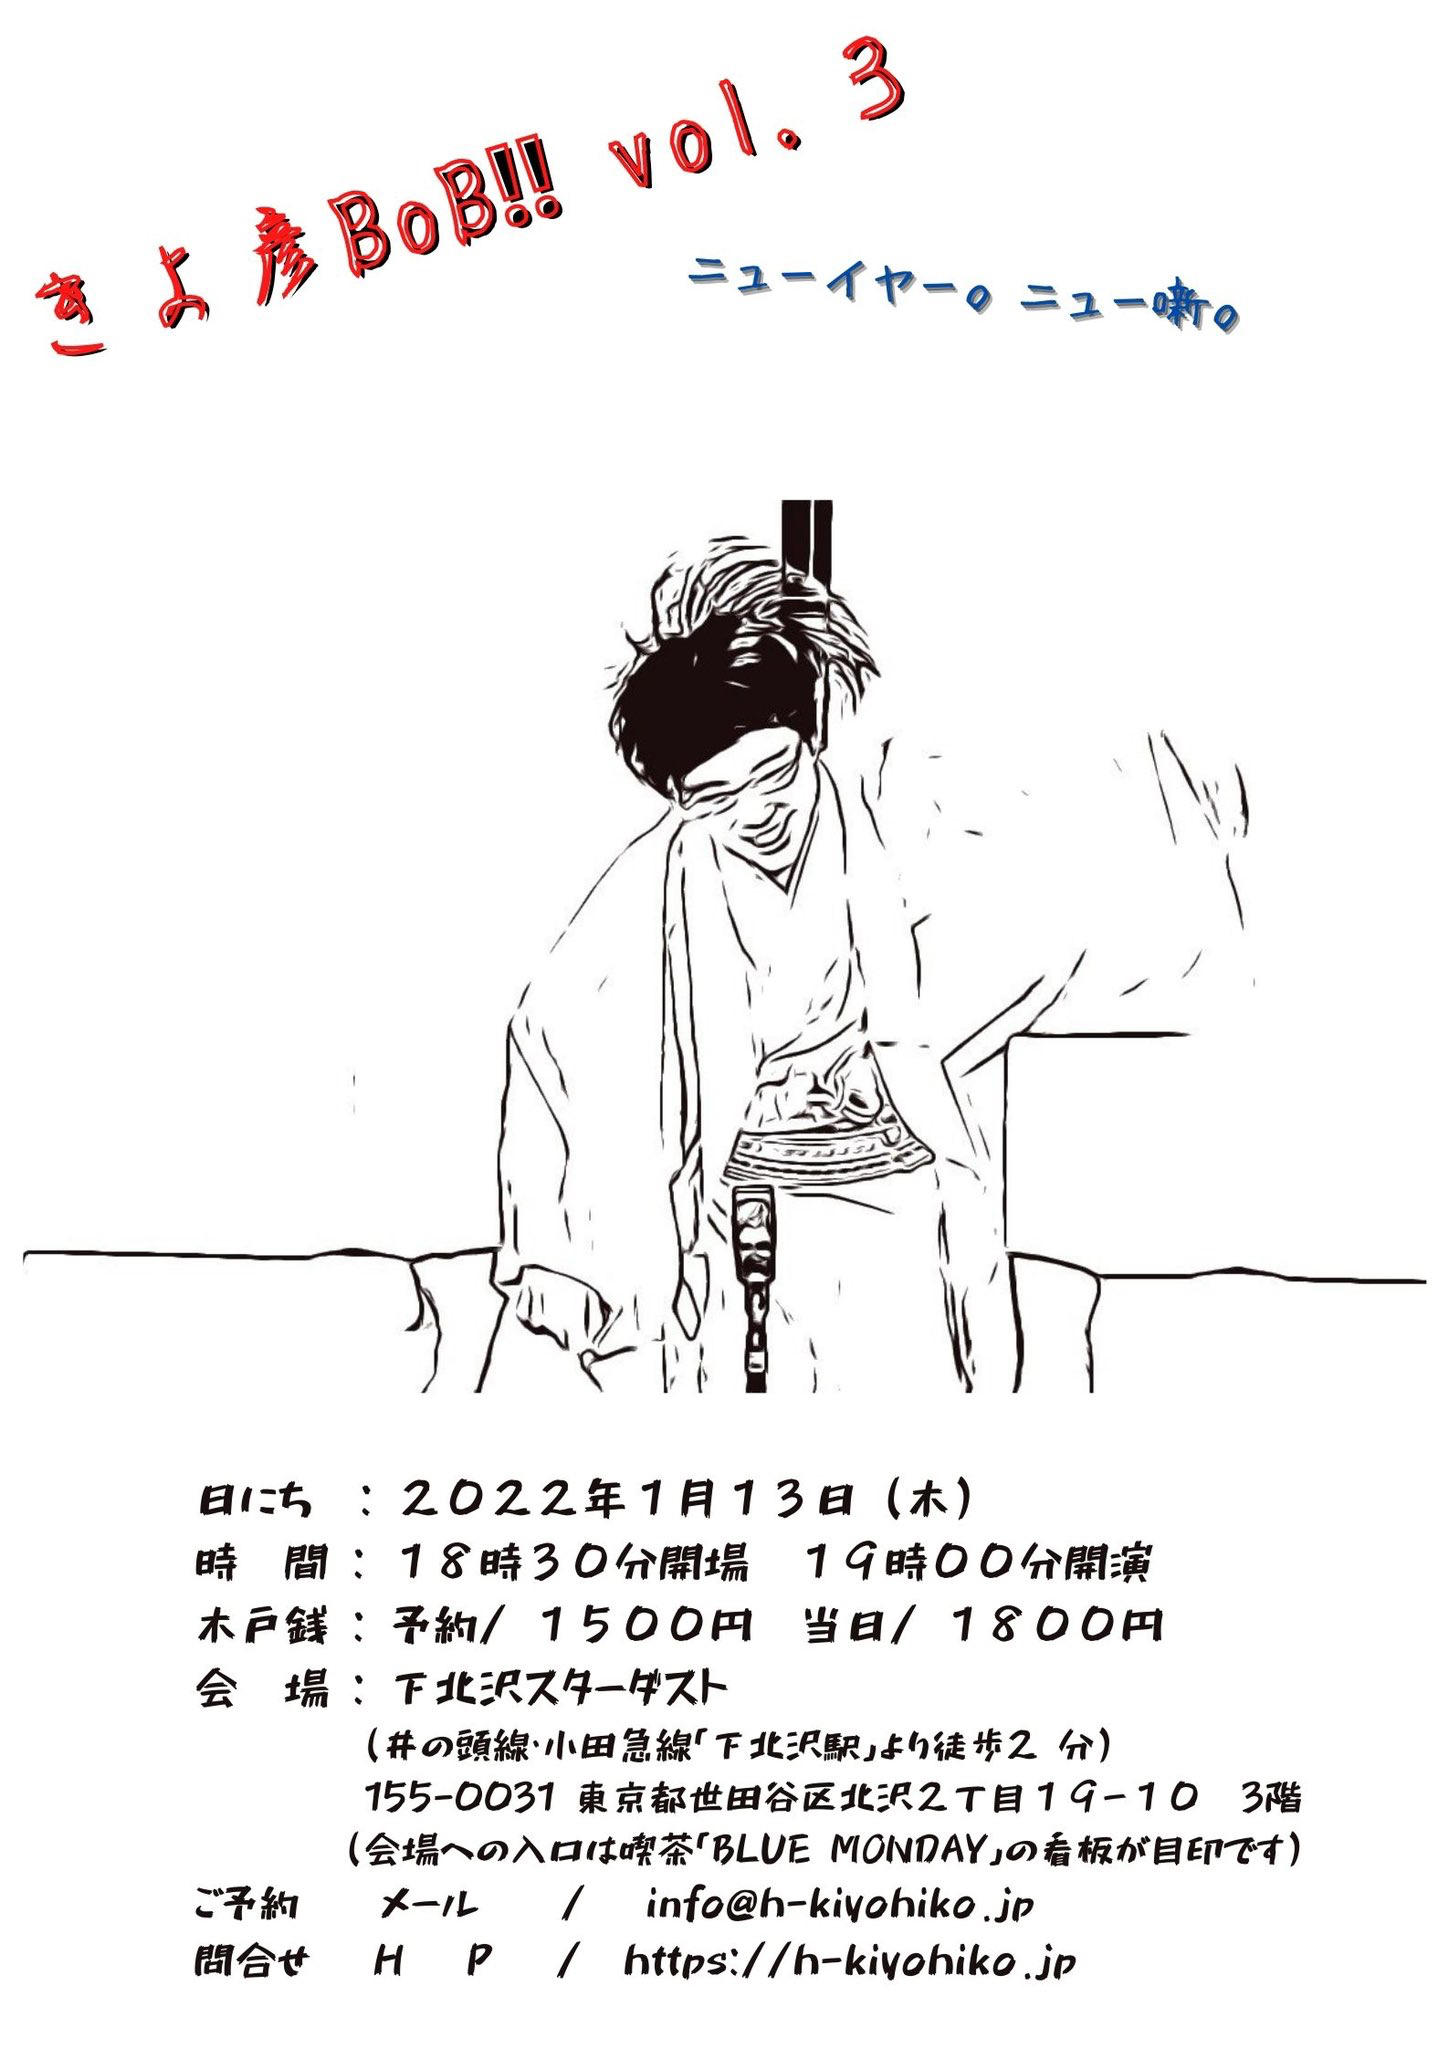 きよ彦BoB!! vol. 3
ニューイヤー。ニュー噺。
日にち　：２０２２年１月１３日（木）
時　間：１８時３０分開場　１９時００分開演
木戸銭：予約/ １５００円　当日/ １８００円
会　場：下北沢スターダスト
（井の頭線・小田急線「下北沢駅」より徒歩２ 分）
155-0031 東京都世田谷区北沢２丁目１９－１０　3階
（会場への入口は喫茶「BLUE MONDAY」の看板が目印です）
ご予約　メール　/　info@h-kiyohiko.jp
問合せ　Ｈ　Ｐ　/　https://h-kiyohiko.jp